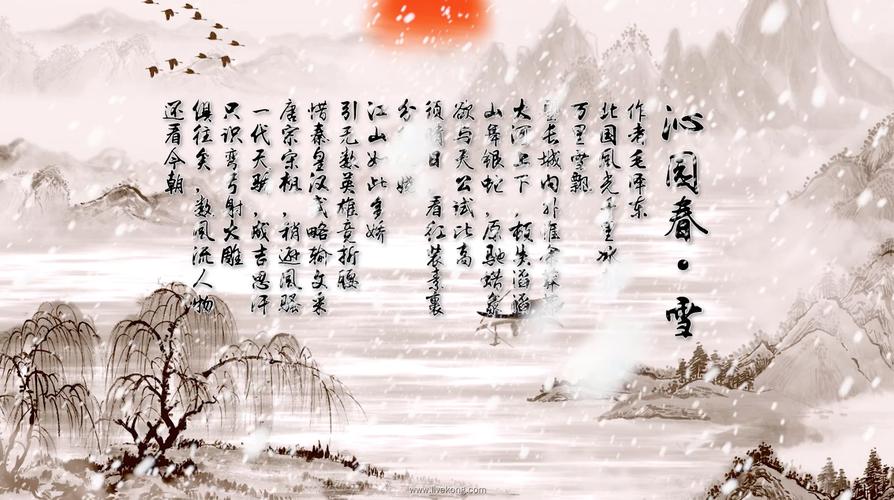 沁园春·雪
作者毛泽东
北国风光千里冰
万里雪飘
望长城内外惟余莽
大河上下,顿失滔滔
山舞银蛇,原驰蜡象
欲与天公试比高
须晴日 看红装素裹
分娆
江山如此多娇
引无数英雄竟折腰
惜秦皇汉武略输文采
唐宗宋祖,稍逊风骚
一代天骄,成吉思汗
只识弯弓射大雕
俱往矣,数风流人物
还看今朝
www.livekong.com